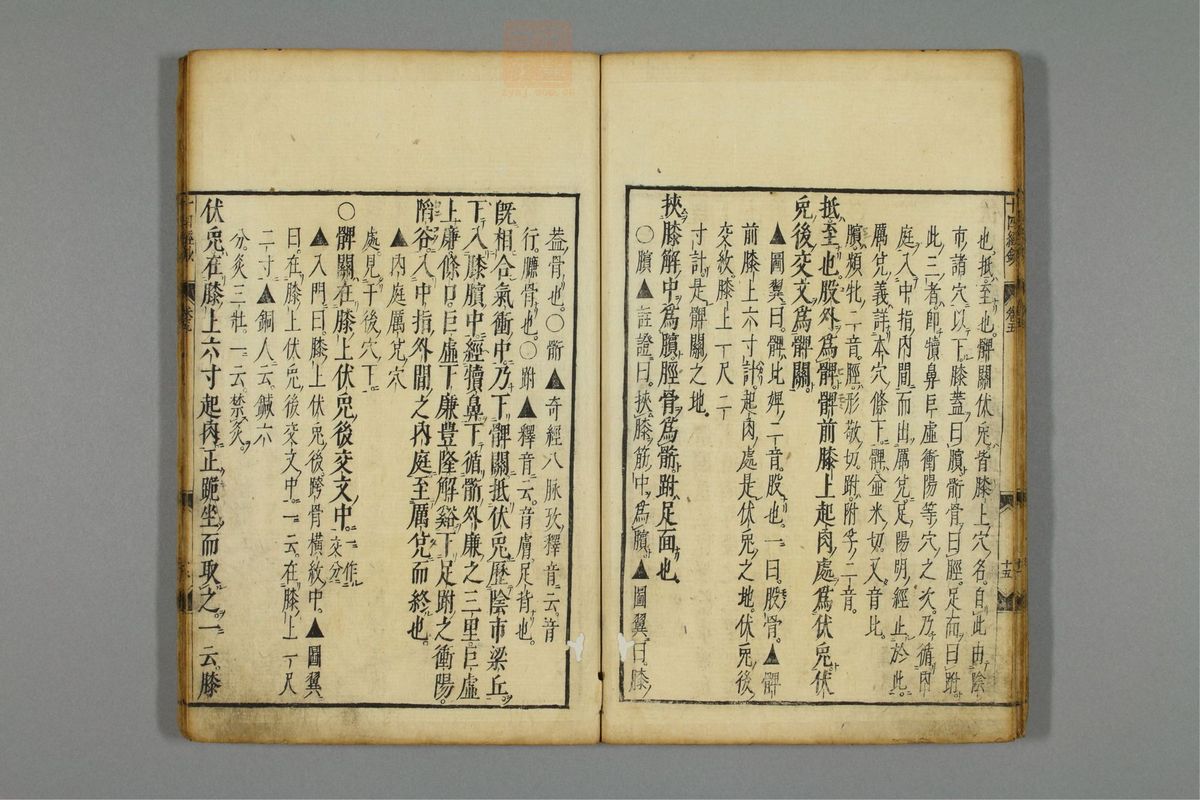 也抵至也髀關伏兎皆膝上穴名自此由陰
市諸穴以下膝蓋曰臏䯒骨曰脛足面曰跗
此三者卽犢鼻巨虛衝陽等穴之次乃循內
庭入中指內間而出厲兊足陽明經止於此
厲兊義詳本穴條下髀並米切又音比
臏頻牝二音脛形敬切跗附孚二音
抵至也股外爲髀髀前膝上起肉處爲伏兎伏
兎後交文爲髀關
▲圖翼曰髀比婢二音股也一曰股骨▲髀
前膝上六寸計起肉處是伏兎之地伏兎後
交紋膝上一尺二
寸計是髀關之地
挾膝解中爲臏脛骨爲䯒跗足面也
〇臏▲註證曰挾膝筋中爲臏▲圖翼曰膝
十五
蓋骨也〇䯒▲奇經八脉攷釋音云音
行臁骨也〇跗▲釋音云音膚足背也
旣相合氣衝中乃下髀關抵伏兎歷陰市梁丘
下入膝臏中經犢鼻下循䯒外廉之三里巨虛
上廉條口巨虛下廉豊隆解谿下足跗之衝陽
陷谷入中指外間之內庭至厲兊而終也
▲內庭厲兊穴
處見于後穴下
〇髀關在膝上伏兎後交文中一作交分
▲入門曰膝上伏兎後跨骨橫紋中▲圖翼
曰在膝上伏兎後交文中一云在膝上一尺
二寸▲銅人云鍼六
分灸三壯一云禁灸
伏兎在膝上六寸起肉正跪坐而取之一云膝